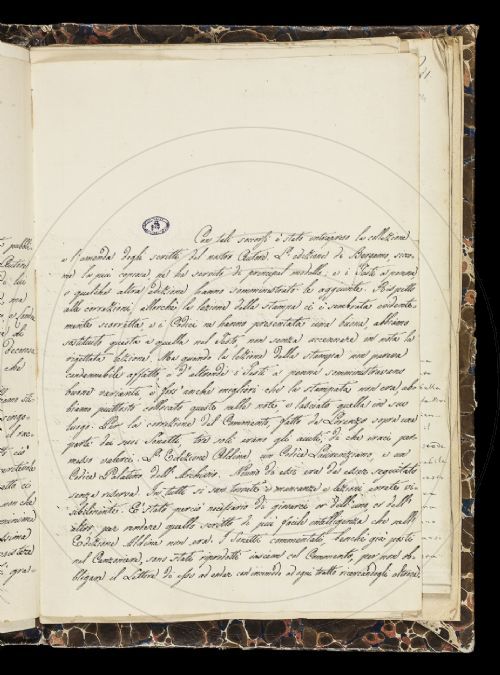 Con tali soccorsi è stata intrapresa la collezione
e l'emenda degli scritti del nostro Autore. L'edizione di Bergamo, sicco-
me la più copiosa, ne ha servito di principal modello: e i Testi a penna
e qualche altra edizione hanno somministrati le aggiunte. Rispetto
alle correzioni, allorchè la lezione della stampa ci è sembrata evidente-
mente scorretta, e i Codici ne hanno presentata una buona, abbiamo
sostituito questa a quella nel Testo, non senza accennare in nota la
rigettata lezione. Ma quando la lezione della stampa non pareva
condannabile affatto, e d'altronde i Testi a penna somministravano
buone varianti, e fors'anche migliori che la stampata non era, ab-
biamo piuttosto collocato queste nelle note, e lasciato quella in suo
luogo. Per la correzione del Commento fatto da Lorenzo sopra una
parte dei suoi Sonetti tre soli erano gli aiuti, di che eravi per-
messo valerci. L'Edizione Aldina, un Codice Laurenziano, e un
Codice Palatino dell'Archivio. Niuno di essi era da esser seguitato
senza riserva. In tutti si son trovate e mancanze e lezioni errate vi-
sibilmente. È stato perciò necessario di giovarci or dell'uno or dell'
altro, per rendere quello scritto di più facile intelligenza che nell'
Edizione Aldina non era. I Sonetti commentati, benchè già posti
nel Canzoniere, sono stati riprodotti insieme col Commento, per non ob-
bligare il Lettore da esso ad andar con incomodo ad ogni tratto ricercandogli altrove